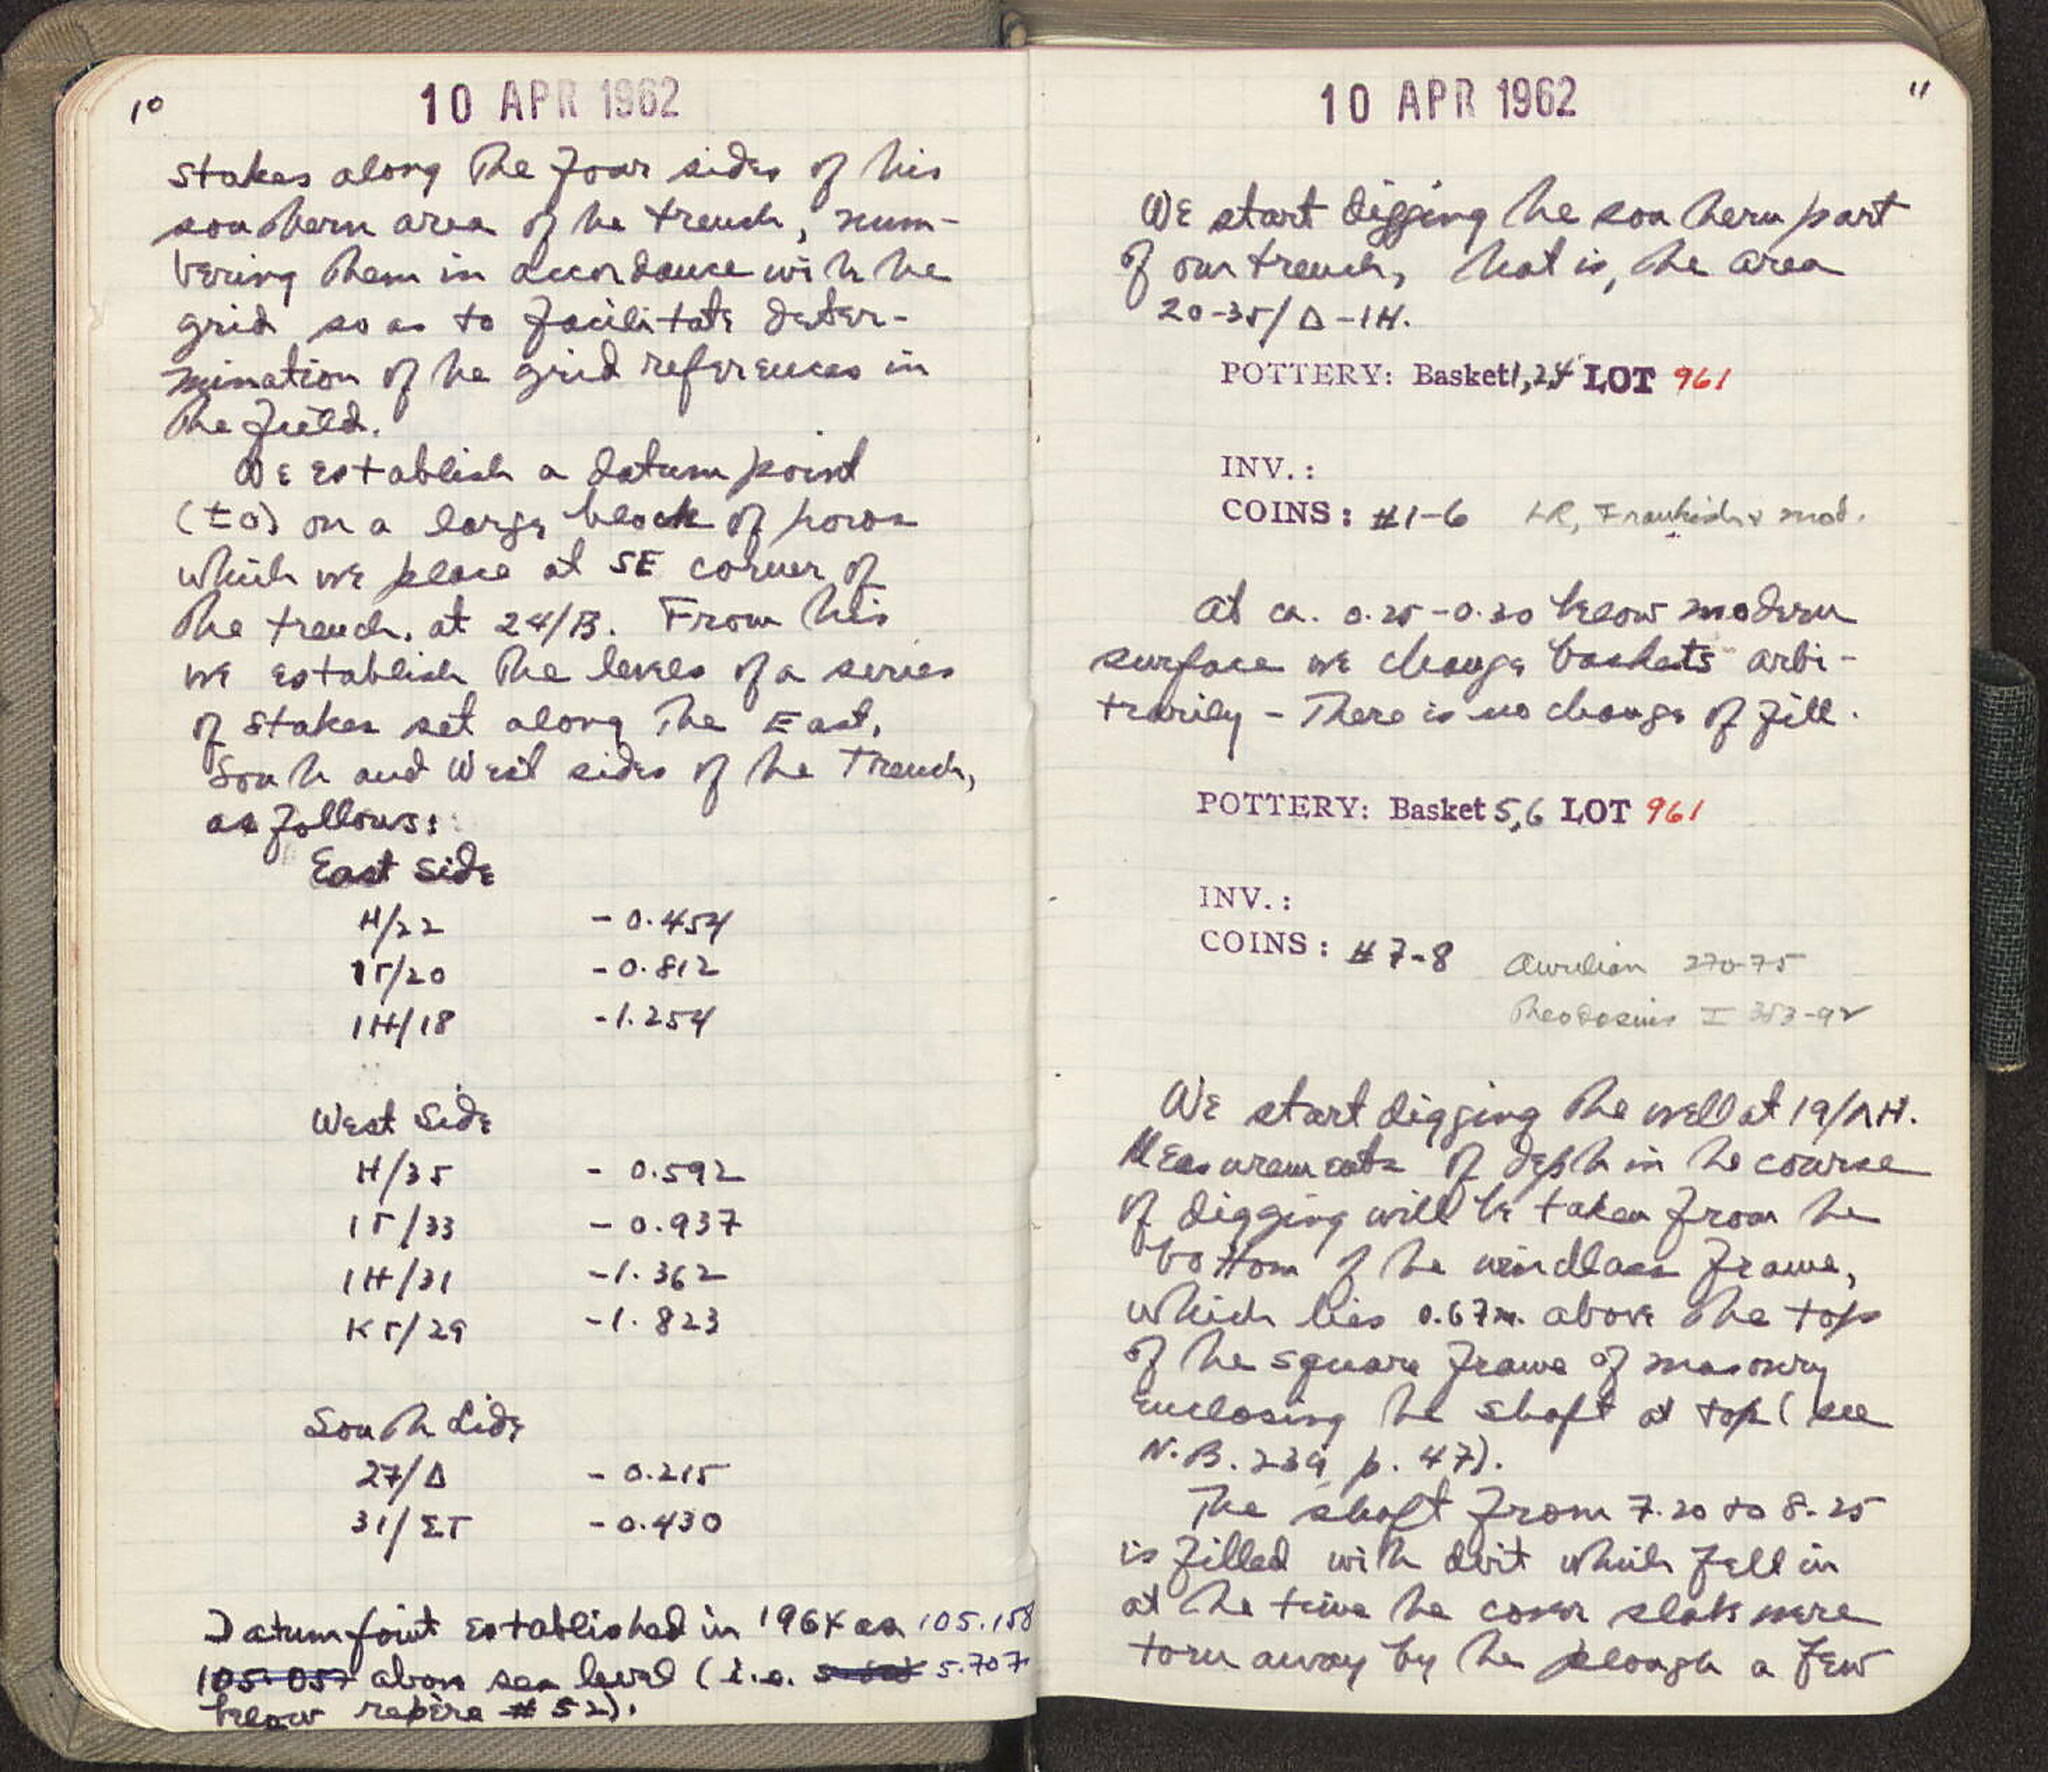 10
10 APR 1962
stakes along the four sides of this
southern area of the trench, num-
bering them in accordance with the
grid so as to facilitate deter-
mination of the grid references in
the field.
We establish a datum point
(±0) on a large block of poros
which we place at SE corner of
the trench, at 24/B. From this
we establish the levels of a series
of stakes set along the East,
South and West sides of the trench,
as follows:
East Side
H/22 - 0.454
IΓ/20 - 0.812
IH/18 - 1.254
West Side
H/35 - 0.592
IΓ/33 - 0.937
IH/31 - 1.362
KΓ/29 - 1.823
South Side
27/Δ - 0.215
31/ΣΤ - 0.430
Datum point established in 1964 as 105.158
105.057 above sea level (i.e. 5.707
below repère #52).
11
10 APR 1962
We start digging the southern part
of our trench, that is, the area
20-35/Δ-IH.
POTTERY: Basket 1,2,4 LOT 961
INV.:
COINS: #1-6 LR, Frankish & mod.
At ca. 0.25-0.30 below modern
surface we change baskets arbi-
trarily - There is no change of fill.
POTTERY: Basket 5,6 LOT 961
INV.:
COINS: #7-8 Aurelian 270-75
Theodosius I 383-92
We start digging the well at 19/ΛH.
Measurements of depth in the course
of digging will be taken from the
bottom of the windlass frame,
which lies 0.67m. above the top
of the square frame of masonry
enclosing the shaft at top (see
N.B. 239, p. 47).
The shaft from 7.20 to 8.25
is filled with dirt which fell in
at the time the cover slabs were
torn away by the plough a few